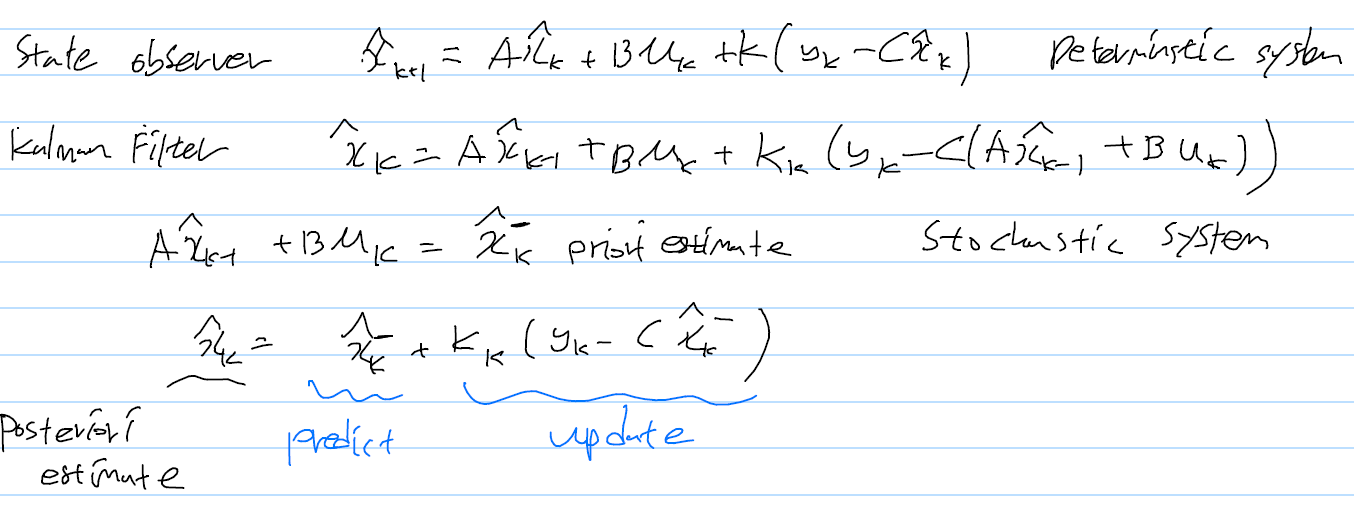 State observer x̂ₖ₊₁ = Ax̂ₖ + Buₖ + K(yₖ - Cx̂ₖ) Determinstic system
Kalman Filter x̂ₖ = Ax̂ₖ₋₁ + Buₖ + Kₖ(yₖ - C(Ax̂ₖ₋₁ + Buₖ))
Ax̂ₖ₋₁ + Buₖ = x̂ₖ⁻ priori estimate Stochastic system
x̂ₖ = x̂ₖ⁻ + Kₖ(yₖ - Cx̂ₖ⁻)
Posteriori
estimate
predict update